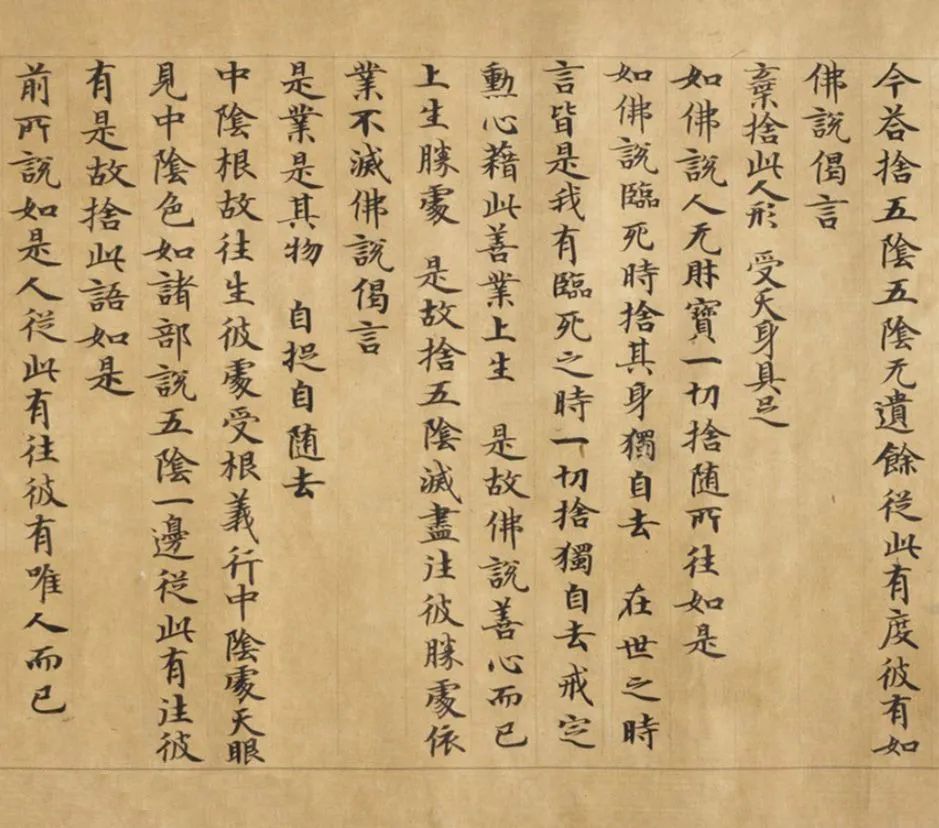 今荅捨五陰五陰无遺餘従此有度彼有如
佛説偈言
棄捨此人形 受天身具足
如佛説人无財寶一切捨随所往如是
如佛説臨死時捨其身獨自去 在世之時
言皆是我有臨死之時一切捨獨自去戒定
勲心藉此善業上生 是故佛説善心而已
上生勝處 是故捨五陰滅盡注彼勝處依
業不滅佛説偈言
是業是其物 自捉自随去
中陰根故往生彼處受根義行中陰處天眼
見中陰色如諸部説五陰一邊従此有注彼
有是故捨此語如是
前所説如是人従此有往彼有唯人而已